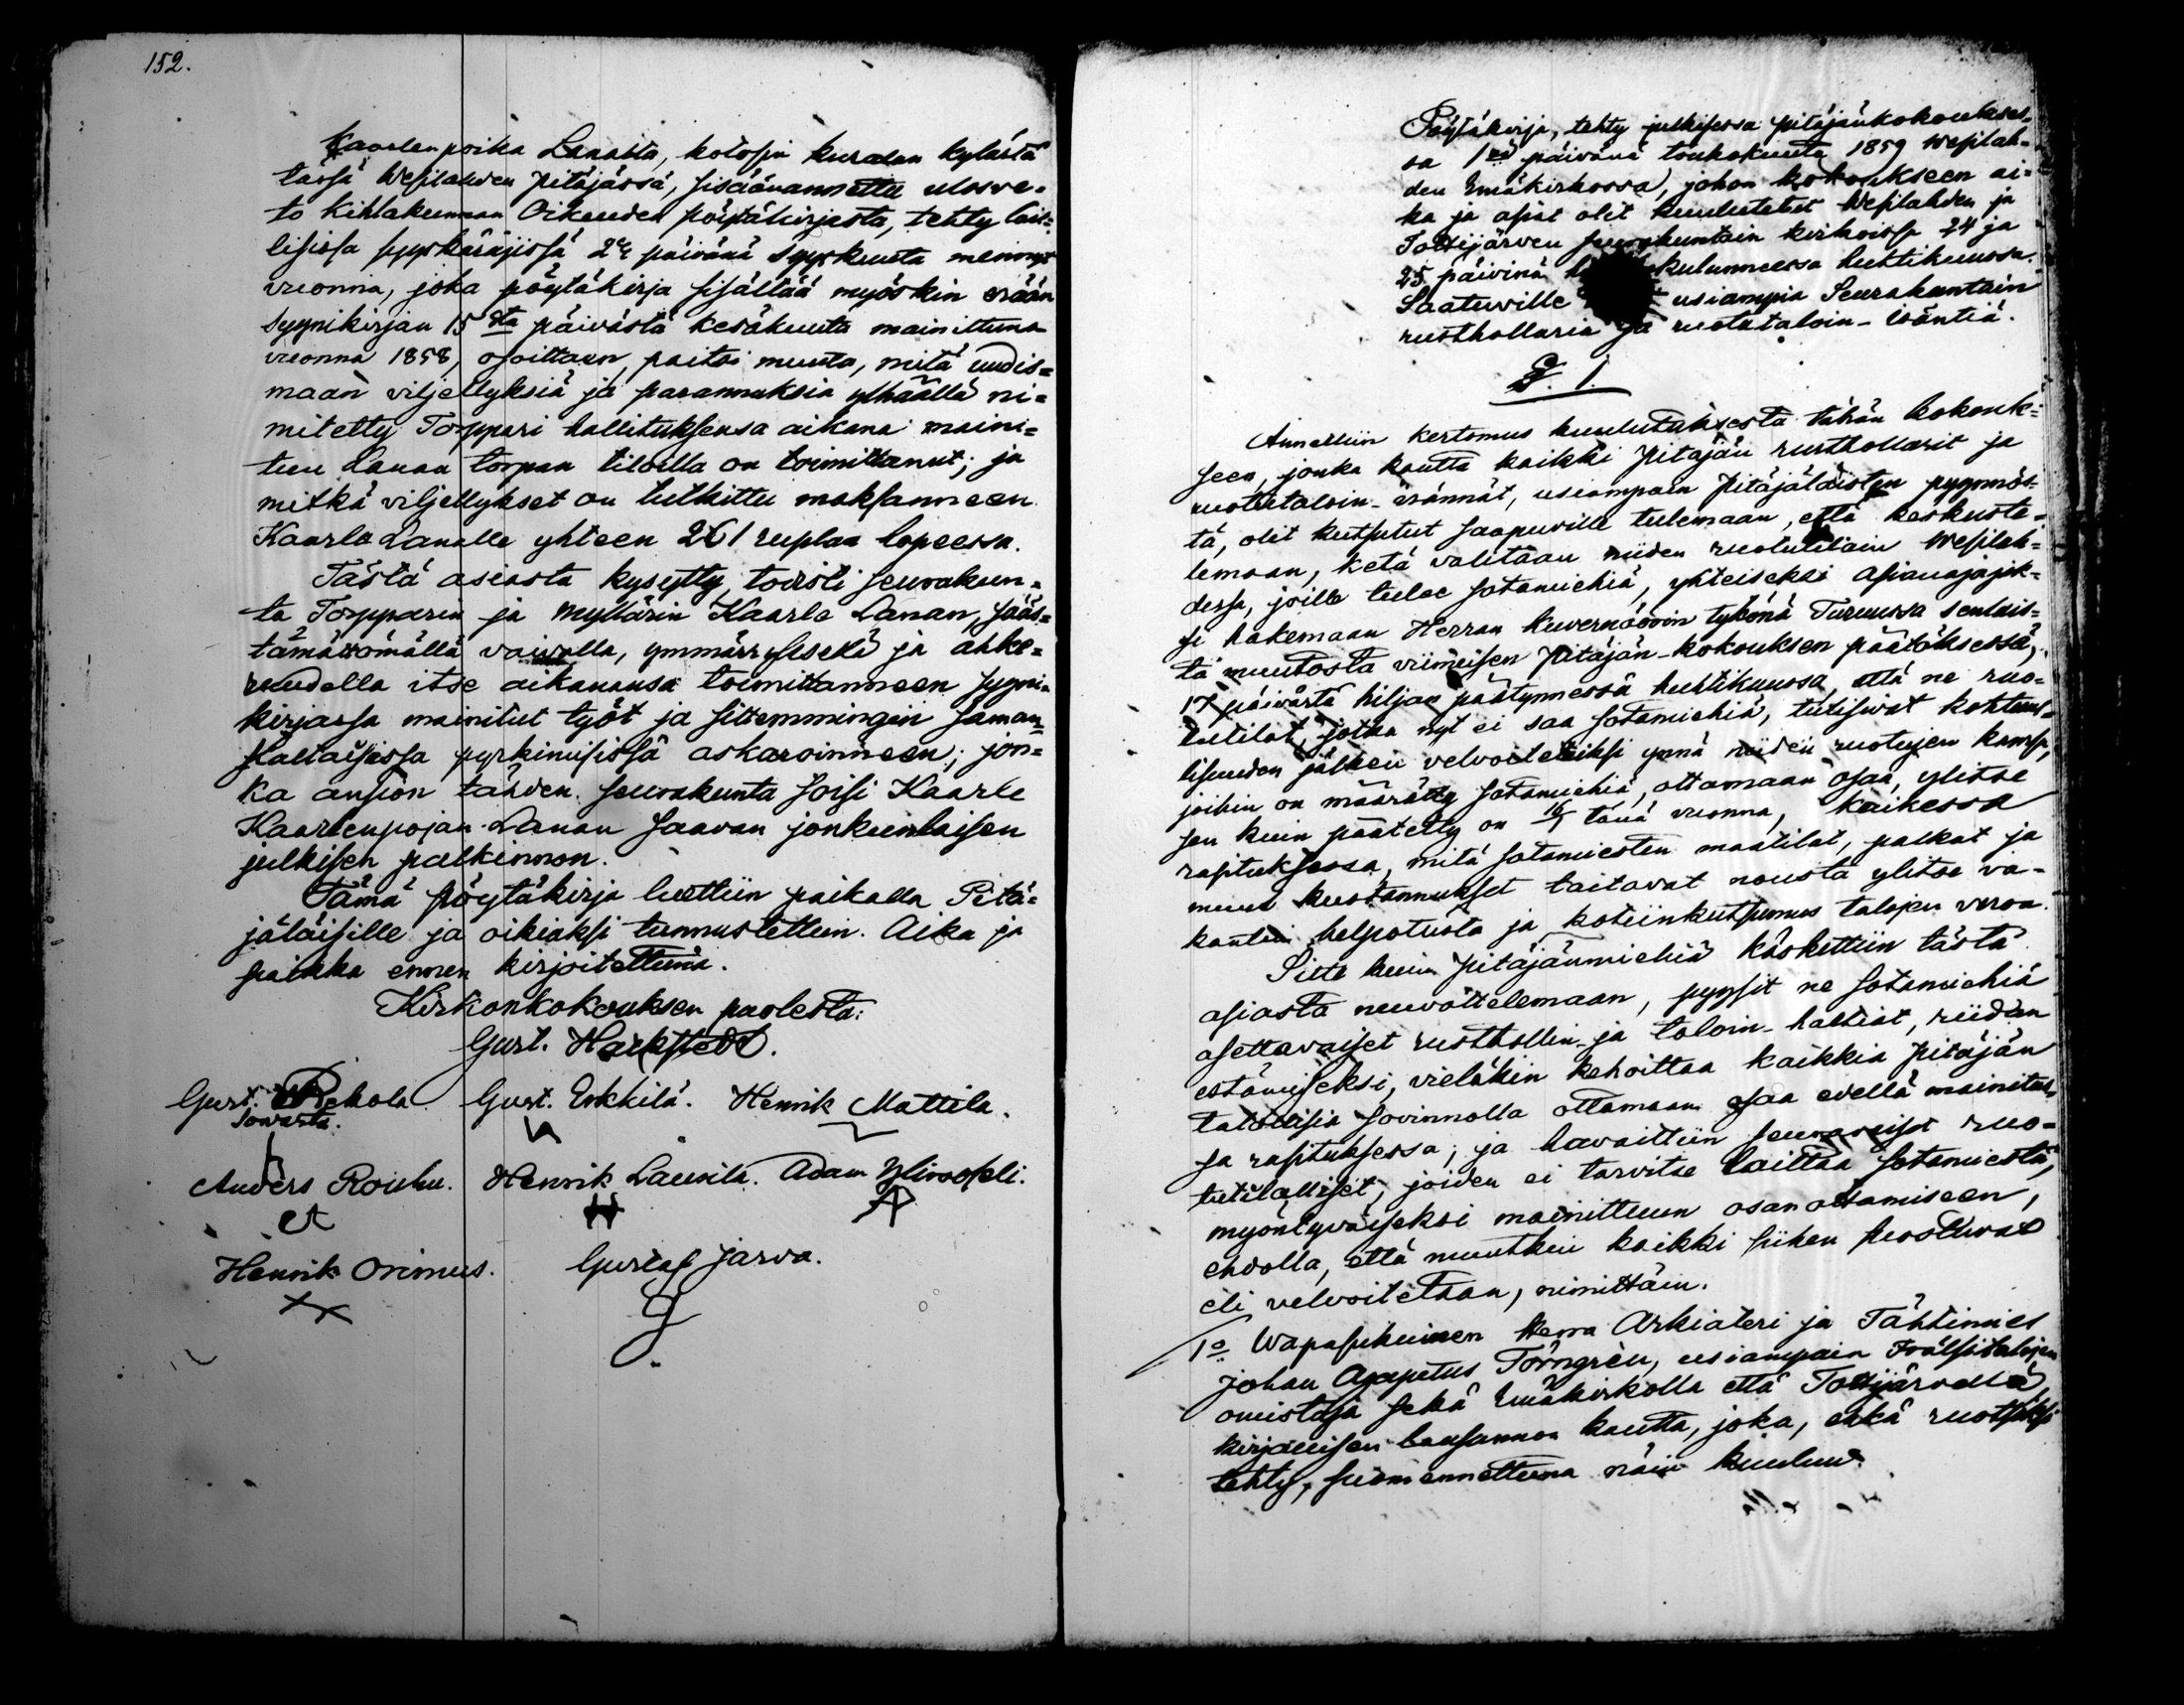 152.
Kaarlenpoika Lanasta, kotosin kuralan kylästä
tässä Wesilahden Pitäjässä, sisäänannettu ulosve-
to kihlakunnan Oikeuden pöytäkirjasta, tehty lail-
lisissa syyskäräjissä 24 päivänä Syyskuuta mennyt
vuonna, joka pöytäkirja sisältää myöskin erään
Syynikirjan 15sta päivästä kesäkuuta mainittuna
vuonna 1858, osoittaen, paitsi muuta, mitä uudis-
maan viljellyksiä ja parannuksia ylhäällä ni-
mitetty Torppari hallituksensa aikana maini-
tun Lanan torpan tiloilla on toimittanut; ja
mitkä viljellykset on tutkittu maksanneen
Kaarle Lanalle yhteen 261 ruplaa hopeessa.
Tästä asiasta kysytty, todisti seurakun-
ta Torpparin ja Myllärin Kaarle Lanan, sääs-
tämättömällä vaivalla, ymmärryksellä ja ahke-
ruudella itse aikanansa toimittanneen Syyni-
kirjassa mainitut työt ja sittemmingin saman-
kaltaisissa pyrkimisissä askaroinneen; jon-
ka ansion tähden seurakunta soisi Kaarle
Kaarlenpojan Lanan saavan jonkunlaisen
julkisen palkinnon.
Tämä pöytäkirja luettiin paikalla Pitä-
jäläisille ja oikiaksi tunnustettiin. Aika ja
paikka ennen kirjoitettuna.
Kirkonkokouksen puolesta:
Gust. Harkstedt.
Gust. Rekola Gust. Erkkilä. Henrik Mattila.
Sowasta.
Anders Rouhu. Henrik Laurila. Adam Ylirooseli.
Henrik Orimus. Gustaf Jarva.
Pöytäkirja, tehty julkisessa pitäjänkokoukses-
sa 1nä päivänä toukokuuta 1859 Wesilah-
den Emäkirkossa, johon kokoukseen ai-
ka ja asiat olit kuulutetut Wesilahden ja
Tottijärven seurakuntain kirkoissa 24 ja
25 päivinä kulunneessa huhtikuussa.
Saatuville usiampia Seurakuntain
rusthollaria ja ruotutaloin-Isäntiä.
§. 1.
Annettiin kertomus kuulutuksesta tähän kokouk-
seen, jonka kautta kaikki Pitäjän rusthollarit ja
ruotutaloin-isännät, usiampain Pitäjäläisten pyynnös-
tä, olit kutsutut saapuville tulemaan, että keskuste-
lemaan, ketä valitaan niiden ruotutiloin Wesilah-
dessa, joille tulee sotamiehiä, yhteiseksi Asianajajak-
si hakemaan Herran kuvernöörin tykönä Turuussa senlais-
ta muutosta viimeisen Pitäjän-kokouksen päätöksessä,
17 päivästä hiljan päätynnessä huhtikuussa, että ne ruo-
tutilat, jotka nyt ei saa sotamiehiä, tulisivat kohtuul-
lisuuden jälkeen velvoitetuiksi ynnä niiden ruotujen kanssa,
joihin on määrätty sotamiehiä, ottamaan osaa, ylitse
sen kuin päätetty on 16/1 tänä vuonna, kaikessa
rasituksessa, mitä sotamiesten maatilat, palkat ja
muut kustannukset taitavat nousta ylitse va-
kantin helpotusta ja kotiinkutsumus talojen veroa.
Siitä kuin Pitäjänmiehiä käskettiin tästä
asiasta neuvottelemaan, pyysit ne sotamiehiä
asettavaiset rusthollin- ja taloin-haltiat, riidan
estämiseksi, vieläkin kehoittaa kaikkia Pitäjän
talollisia sovinnolla ottamaan osaa edellä mainitus-
sa rasituksessa; ja havaittiin seuraavaiset ruo-
tutilalliset, joiden ei tarvitse laittaa sotamiestä,
myöntyväiseksi mainittuun osanottamiseen,
ehdolla, että muutkin kaikki siihen suostuvat
eli velvoitetaan, nimittäin.
1o Wapasukuinen Herra Arkiateri ja Tähtimies
Johan Agapetus Törngrén, usiampain Frälsitalojen
omistaja sekä Emäkirkolla että Tottijärvellä
kirjallisen lausunnon kautta, joka, ehkä ruotsiksi
tehty, suomennettuna näin kuuluu.